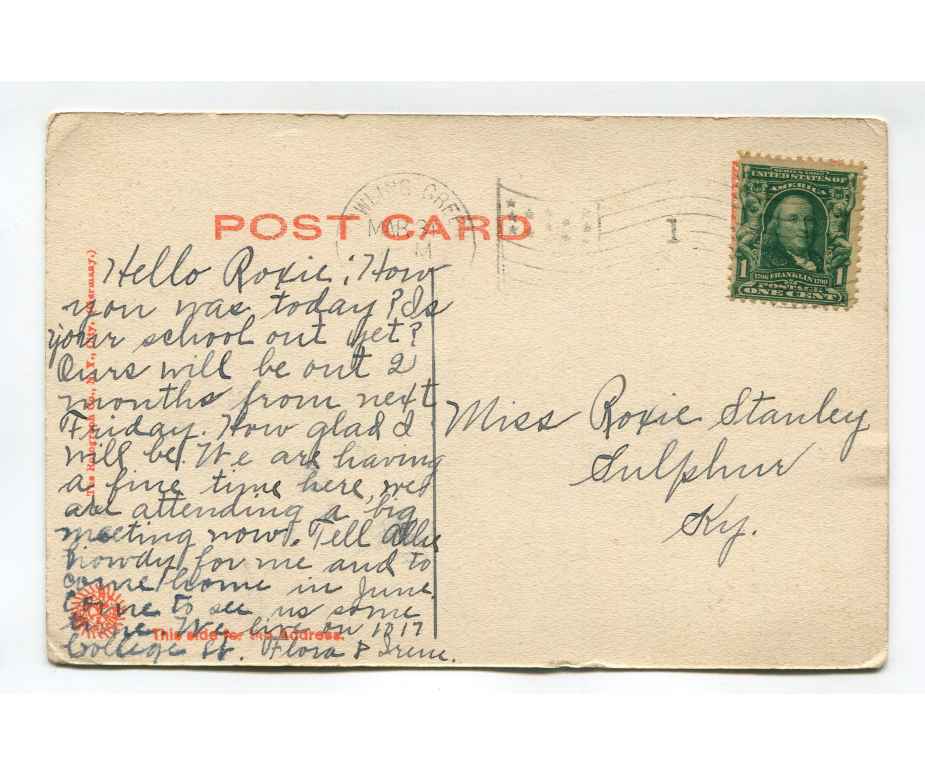 POST CARD
WLING GREE
MAR
M
1
SERIES 1902
UNITED STATES OF
AMERICA
1 1706 FRANKLIN 1790 1
POSTAGE
ONE CENT
Hello Roxie; How
you was today? Is
your school out yet?
Ours will be out 2
months from next
Friday. How glad I
will be. We are having
a fine time here, we
are attending a big
meeting now. Tell Allie
howdy for me and to
come home in June.
Come to see us some
time. We live on 1017
College St. Flora & Irene.
Miss Roxie Stanley
Sulphur
Ky.
This side for the Address.
The Rotograph Co., N. Y., City. (Germany.)